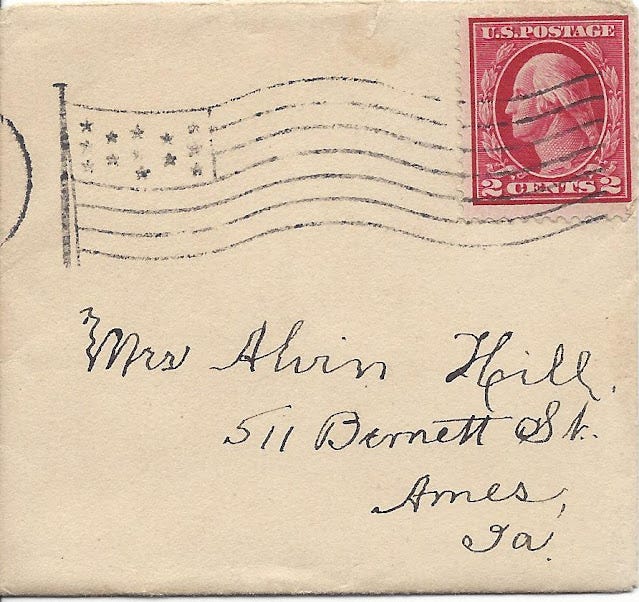 U.S. POSTAGE
2 CENTS 2
Mrs Alvin Hill.
511 Bernett St.
Ames,
Ia.